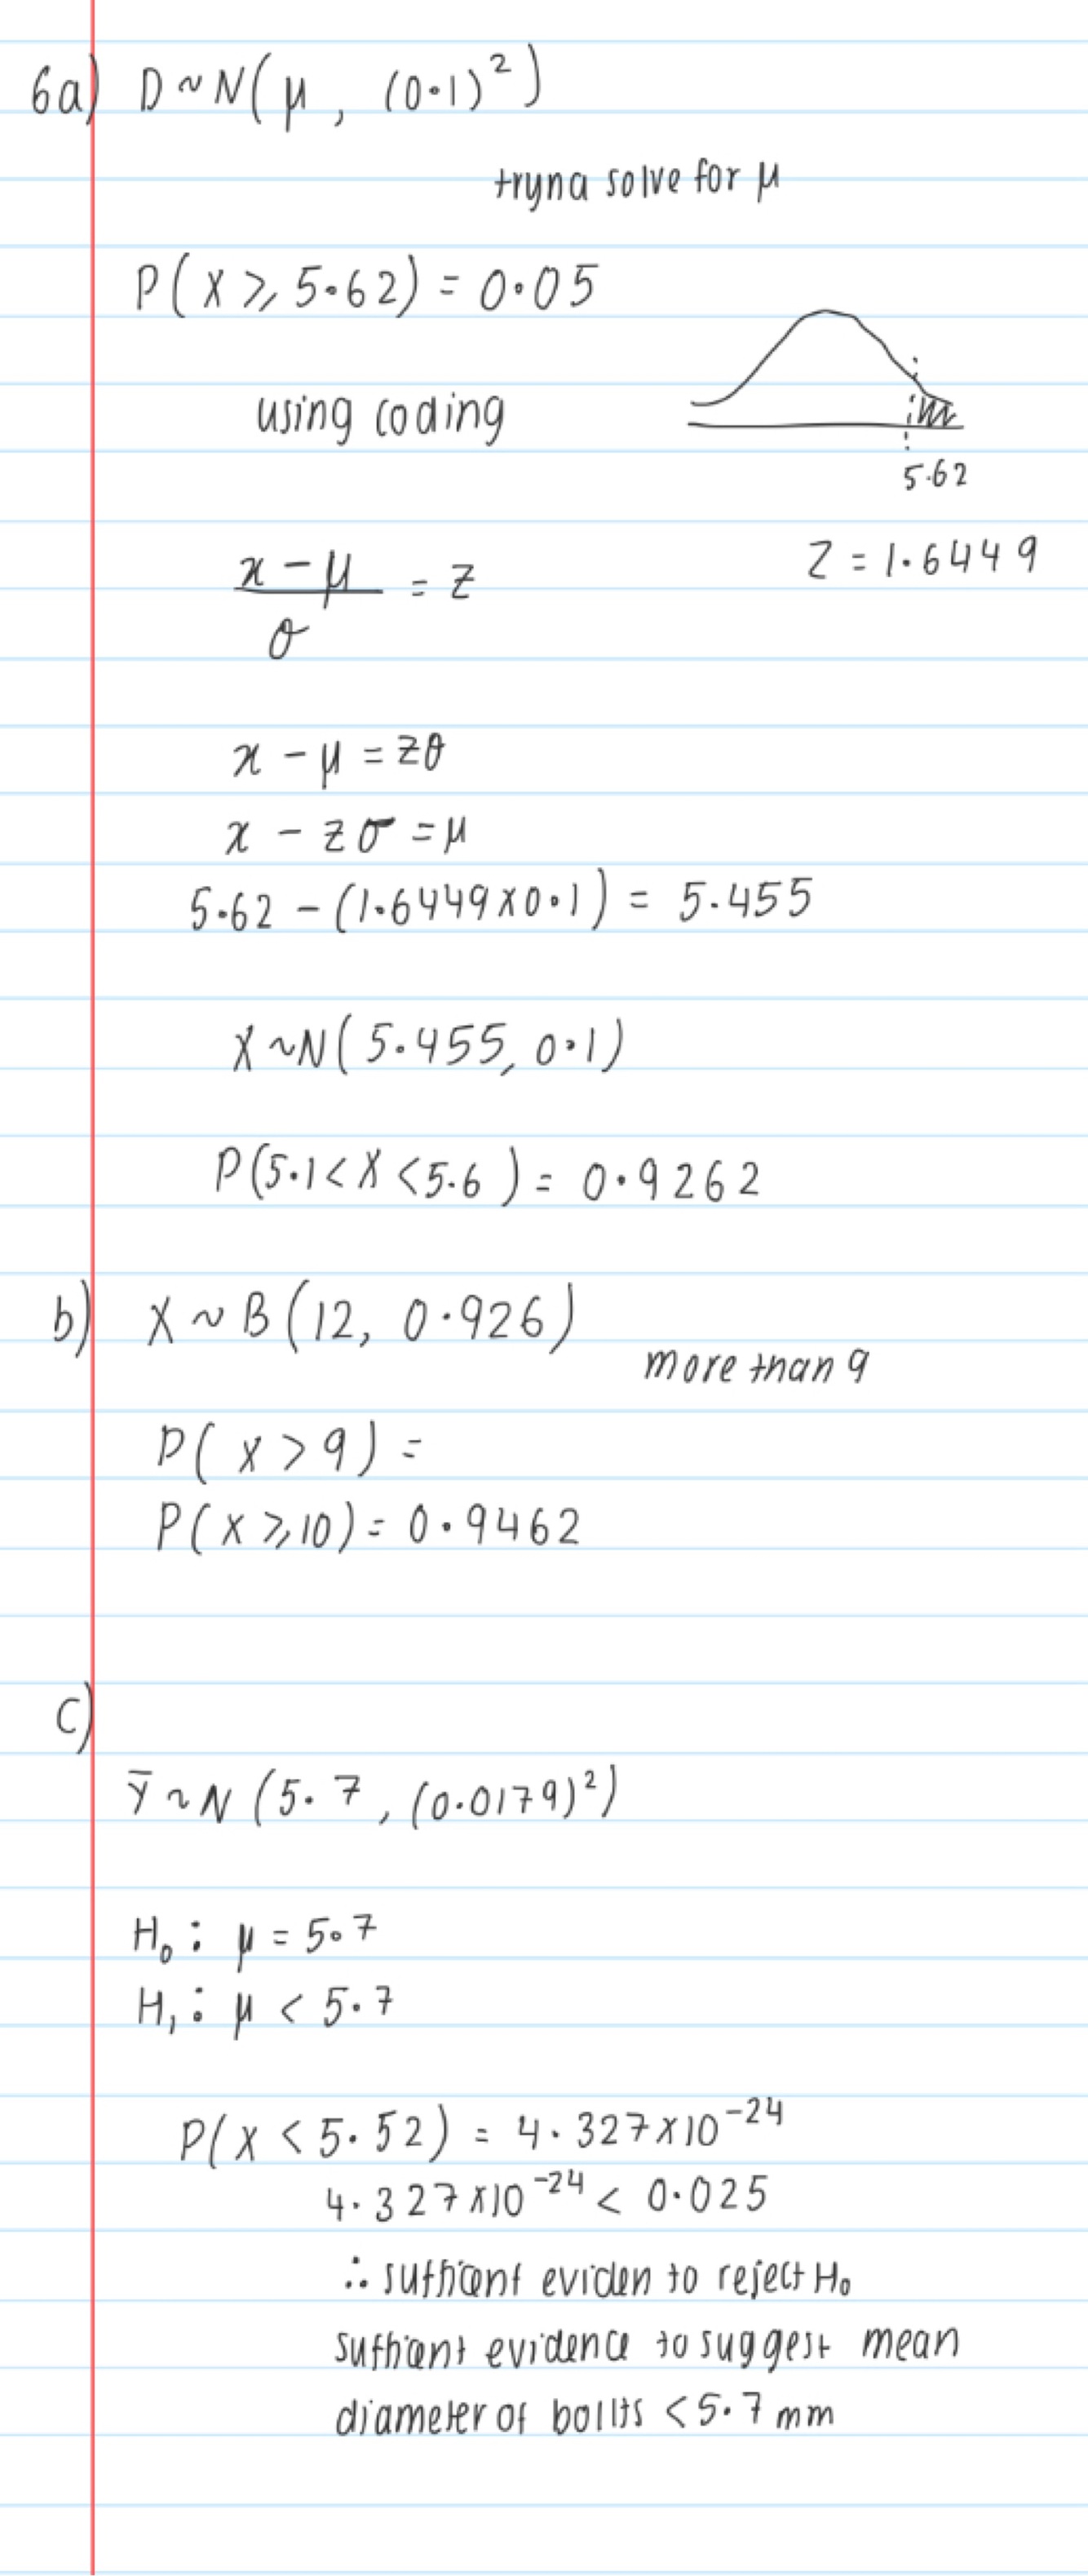 6a) D ~ N(μ, (0·1)²)
tryna solve for μ
P(X ⩾ 5·62) = 0·05
using coding
5·62
Z = 1·6449
x − μ / σ = z
x − μ = zσ
x − zσ = μ
5·62 − (1·6449×0·1) = 5·455
X ~ N(5·455, 0·1)
P(5·1 < X < 5·6) = 0·9262
b) X ~ B(12, 0·926)
more than 9
P(X > 9) =
P(X ⩾ 10) = 0·9462
c)
Ȳ ~ N(5·7, (0·0179)²)
H₀ : μ = 5·7
H₁ : μ < 5·7
P(X < 5·52) = 4·327×10⁻²⁴
4·327×10⁻²⁴ < 0·025
∴ sufficent eviden to reject H₀
sufficent evidence to suggest mean
diameter of bollts < 5·7 mm